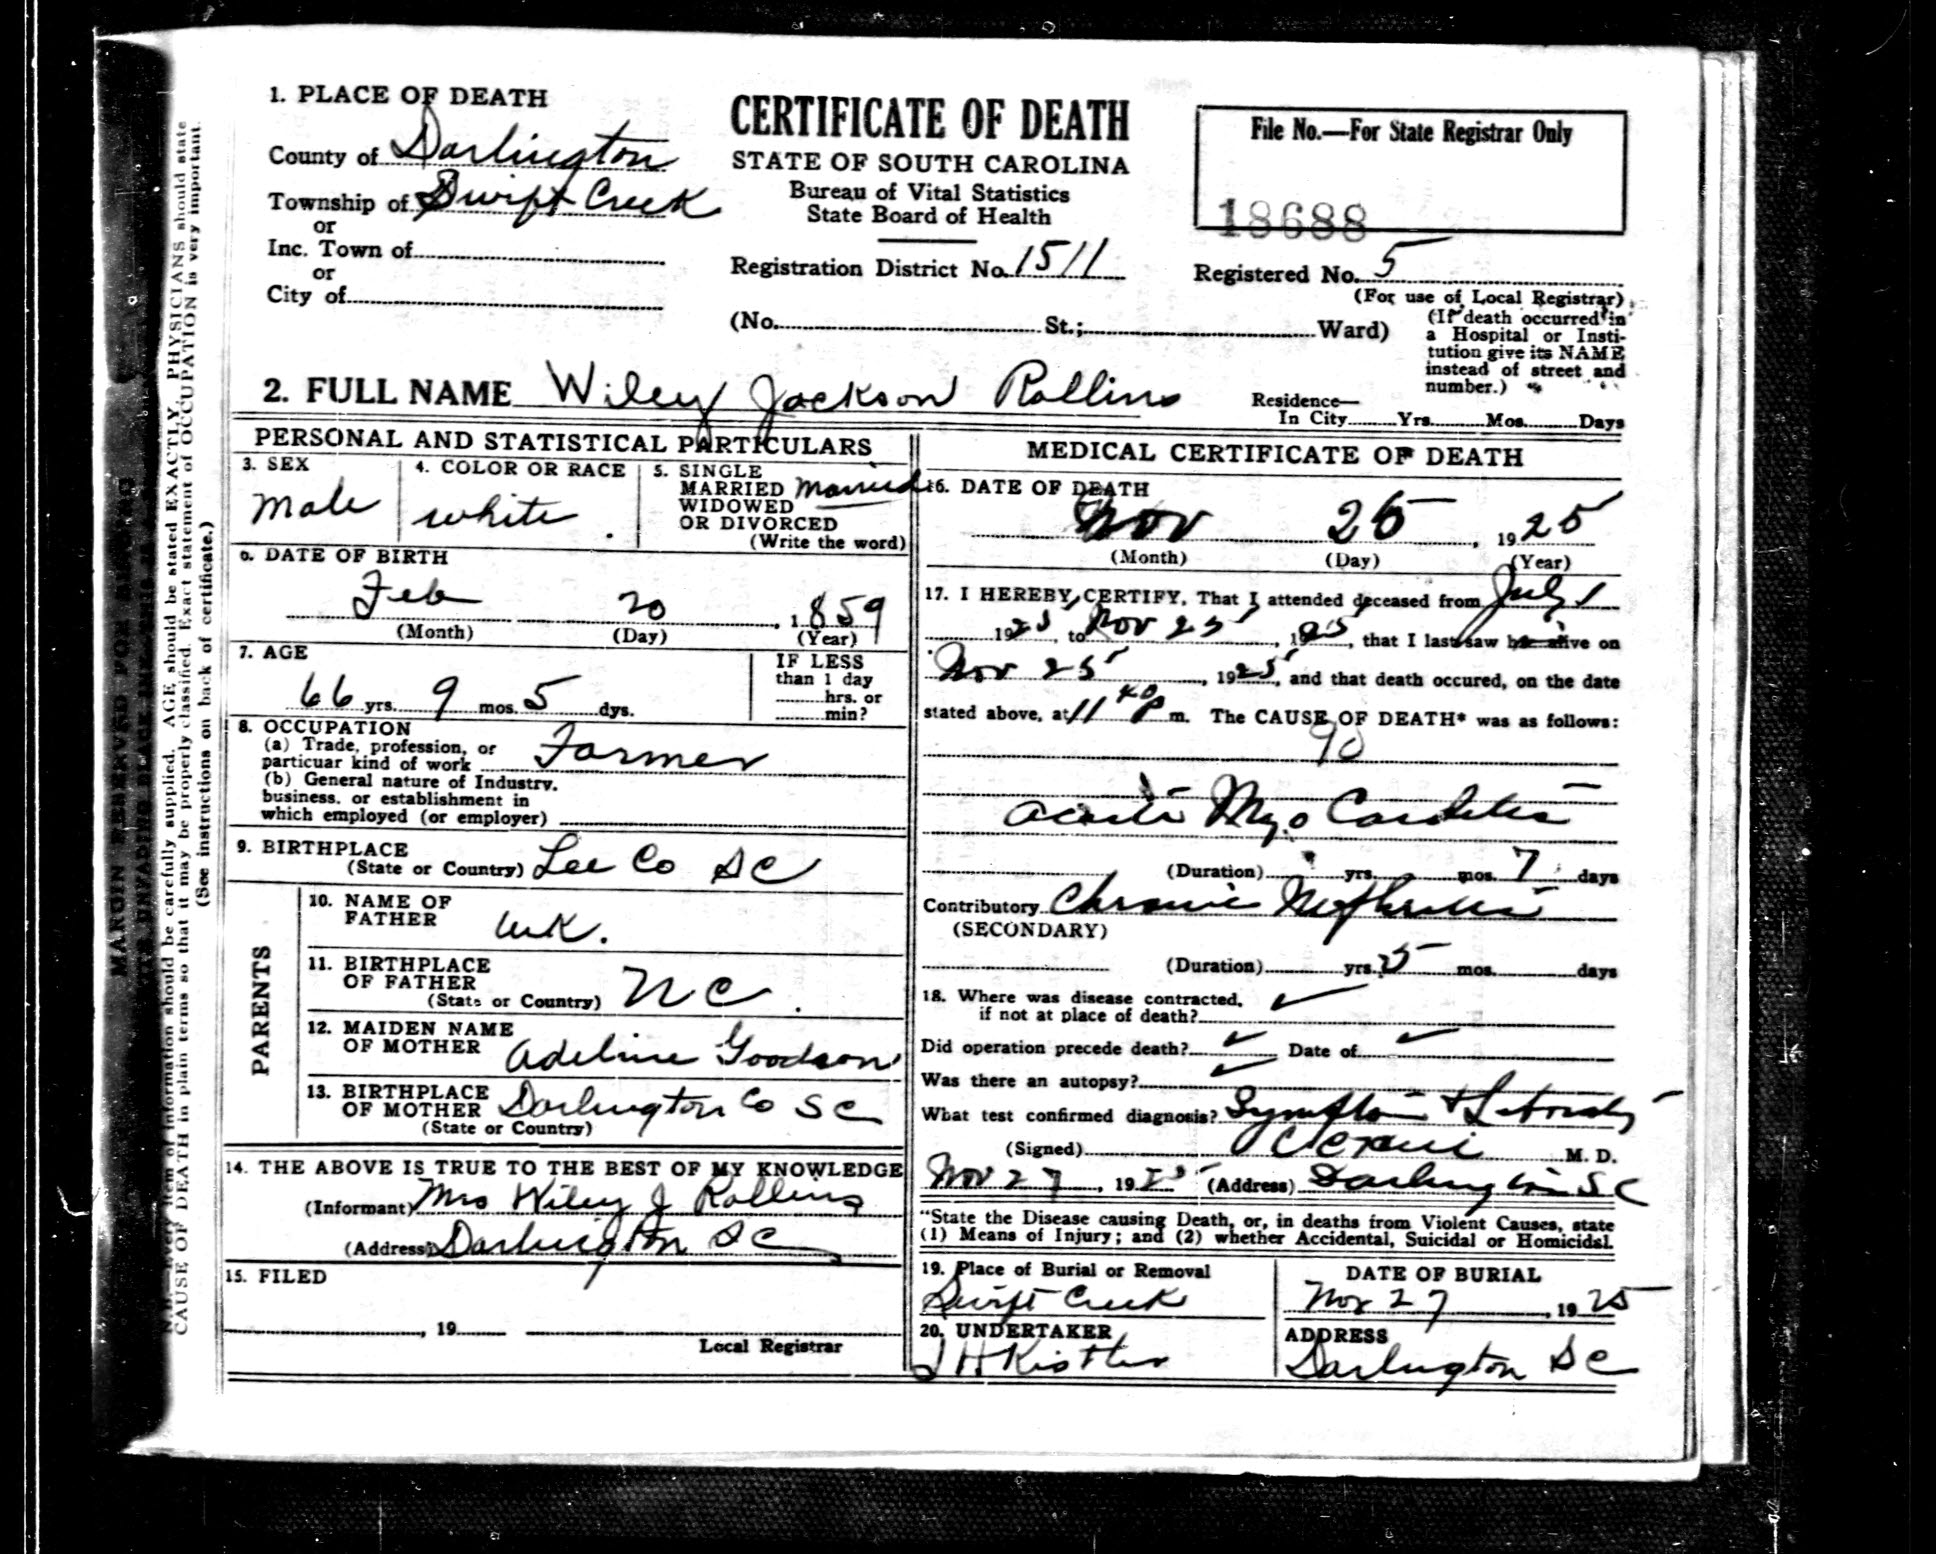 1. PLACE OF DEATH
County of Darlington
Township of Swift Creek
or
Inc. Town of
or
City of
CERTIFICATE OF DEATH
STATE OF SOUTH CAROLINA
Bureau of Vital Statistics
State Board of Health
Registration District No. 1511
(No. St.; Ward)
File No.—For State Registrar Only
18688
Registered No. 5
(For use of Local Registrar)
(If death occurred in
a Hospital or Insti-
tution give its NAME
instead of street and
number.)
2. FULL NAME Wiley Jackson Rollins
Residence—
In City Yrs. Mos. Days
PERSONAL AND STATISTICAL PARTICULARS
3. SEX
Male
4. COLOR OR RACE
white
5. SINGLE
MARRIED Married
WIDOWED
OR DIVORCED
(Write the word)
6. DATE OF BIRTH
Feb 20, 1859
(Month) (Day) (Year)
7. AGE
66 yrs. 9 mos. 5 dys.
IF LESS
than 1 day
hrs. or
min?
8. OCCUPATION
(a) Trade, profession, or
particuar kind of work Farmer
(b) General nature of Industry,
business, or establishment in
which employed (or employer)
9. BIRTHPLACE
(State or Country) Lee Co SC
PARENTS
10. NAME OF
FATHER unk.
11. BIRTHPLACE
OF FATHER
(State or Country) NC.
12. MAIDEN NAME
OF MOTHER Adeline Goodson
13. BIRTHPLACE
OF MOTHER Darlington Co SC
(State or Country)
14. THE ABOVE IS TRUE TO THE BEST OF MY KNOWLEDGE
(Informant) Mrs Wiley J Rollins
(Address) Darlington SC
15. FILED
, 19
Local Registrar
MEDICAL CERTIFICATE OF DEATH
16. DATE OF DEATH
Nov 25, 1925
(Month) (Day) (Year)
17. I HEREBY CERTIFY, That I attended deceased from July 1
1925, to Nov 25, 1925, that I last saw alive on
Nov 25, 1925, and that death occured, on the date
stated above, at 11 40 P m. The CAUSE OF DEATH* was as follows:
90
Acute Myo Carditis
(Duration) yrs. mos. 7 days
Contributory Chronic Nephritis
(SECONDARY)
(Duration) yrs. 5 mos. days
18. Where was disease contracted,
if not at place of death? ✓
Did operation precede death? ✓ Date of ✓
Was there an autopsy? ✓
What test confirmed diagnosis?
(Signed) M. D.
Nov 27, 1925 (Address) Darlington SC
"State the Disease causing Death, or, in deaths from Violent Causes, state
(1) Means of Injury; and (2) whether Accidental, Suicidal or Homicidal.
19. Place of Burial or Removal
Swift Creek
DATE OF BURIAL
Nov 27, 1925
20. UNDERTAKER
J H Kistler
ADDRESS
Darlington SC
CAUSE OF DEATH in plain terms so that it may be properly classified. Exact statement of OCCUPATION is very important.
(See instructions on back of certificate.)